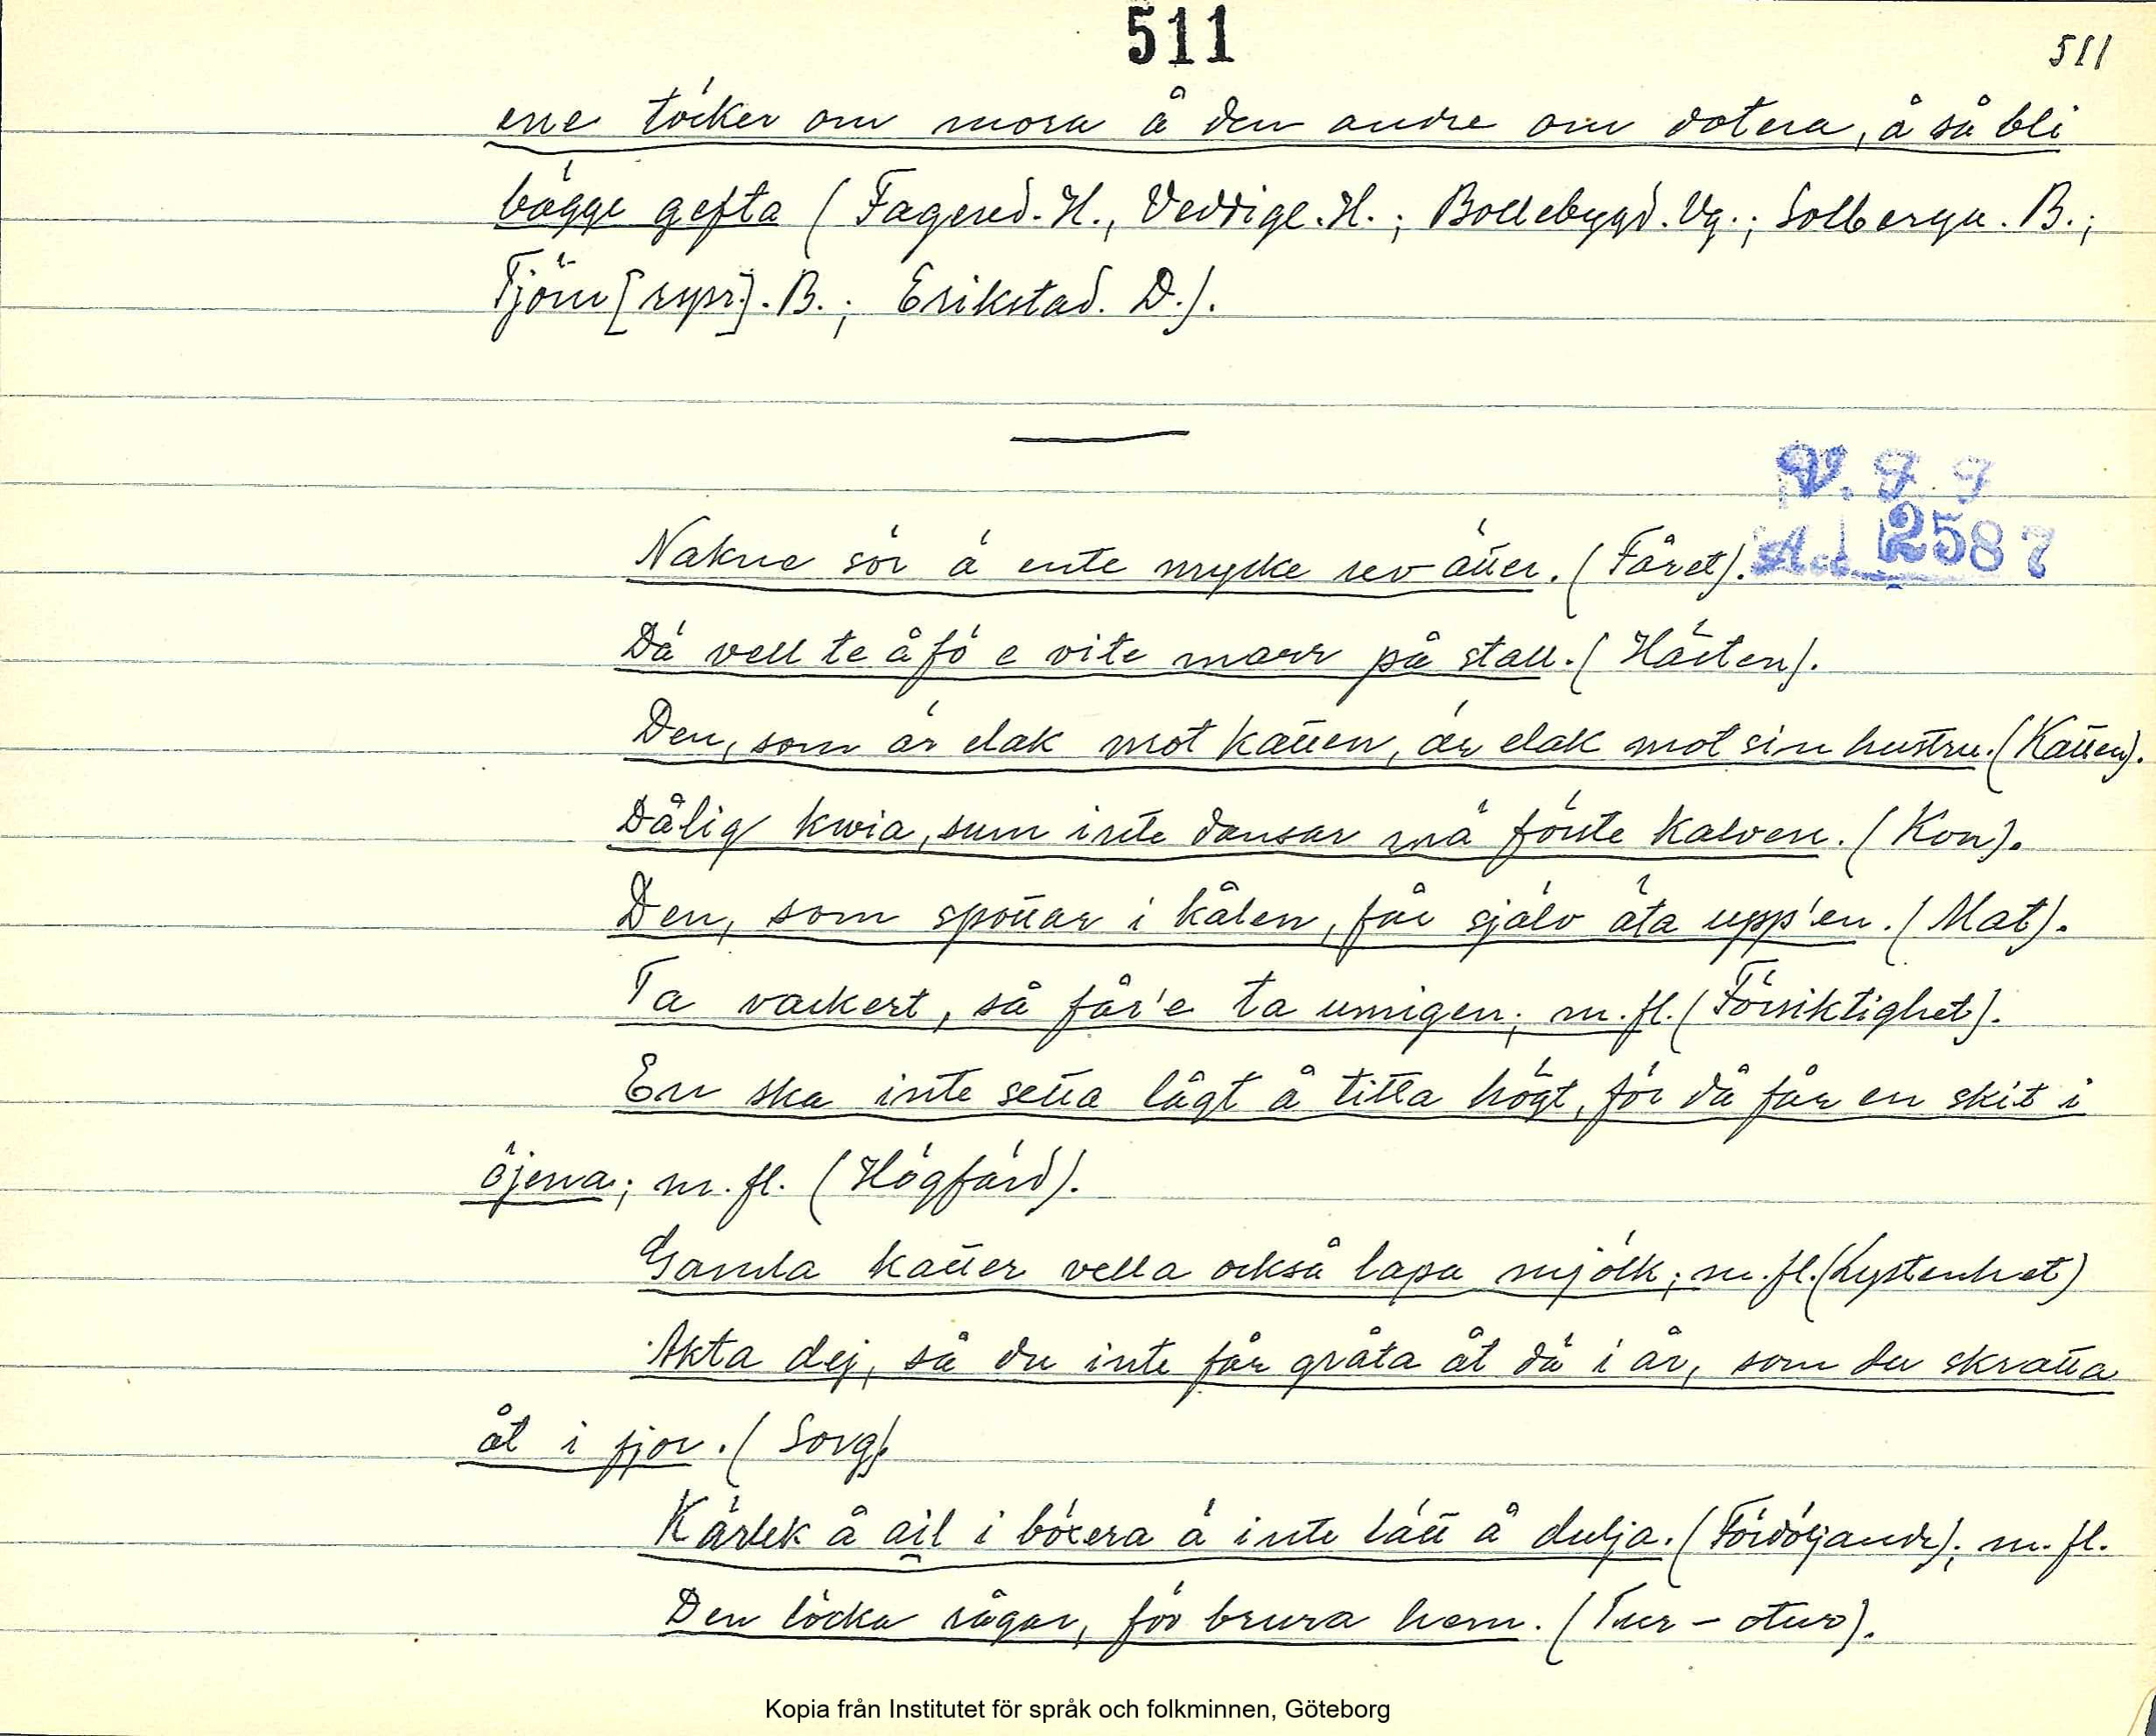 511
511
ene töcker om mora å den andre om dotera, å så bli
bägge gefta (Fagered. H., Veddige. H.; Bollebygd. Vg.; Solberga. B.;
Tjörn [rypr.]. B.; Erikstad. D.).
V. F. F
Acc 2587
Nakne sör ä ente mycke rev ätter. (Fåret).
Dä vell te å fö e vite marr på stall. (Hästen).
Den, som är elak mot katten, är elak mot sin hustru. (Katten).
Dålig kwia, sum inte dansar mä förste kalven. (Kon).
Den, som spottar i kålen, får själv äta upp'en. (Mat).
Ta vackert, så får'e ta umigen; m. fl. (Försiktighet).
En ska inte setta lågt å titta högt, för då får en skit i
öjena; m. fl. (Högfärd).
Gamla katter vella också lapa mjölk; m. fl. (Lystenhet)
Akta dej, så du inte får gråta åt dä i år, som du skratta
åt i fjor. (Sorg).
Kärlek å ail i böxera ä inte lätt å dulja. (Fördöljande); m. fl.
Den löcka vågar, för brura hem. (Tur – otur).
Kopia från Institutet för språk och folkminnen, Göteborg